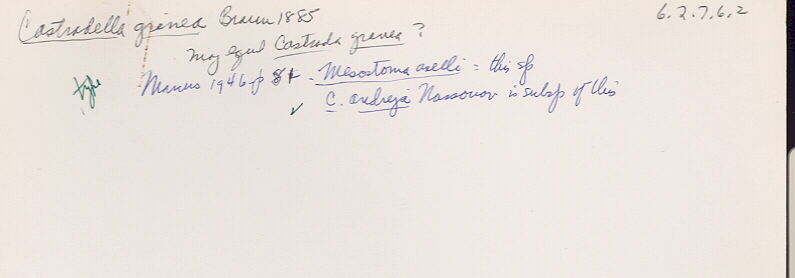 Castradella grinea Braun 1885 6.2.7.6.2
may equal Castrada granea ?
type Marcus 1946 p 81 - Mesostoma aselli = this sp
✓ C. andreja Nassonov is subsp of this